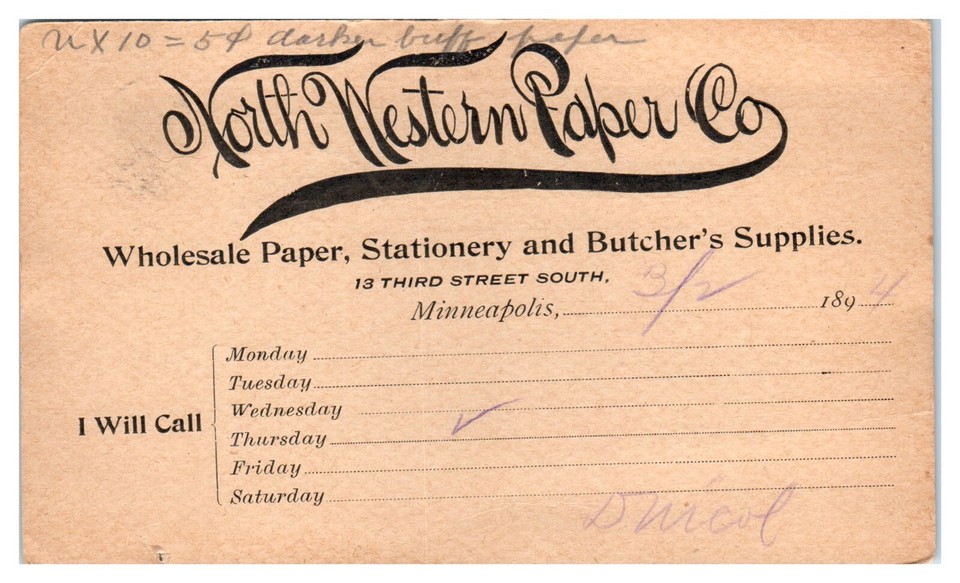 UX10 = 5¢ darker buff paper
North Western Paper Co
Wholesale Paper, Stationery and Butcher's Supplies.
13 THIRD STREET SOUTH,
Minneapolis, 3/2 1894
I Will Call
Monday
Tuesday
Wednesday
Thursday ✓
Friday
Saturday
D Nicol